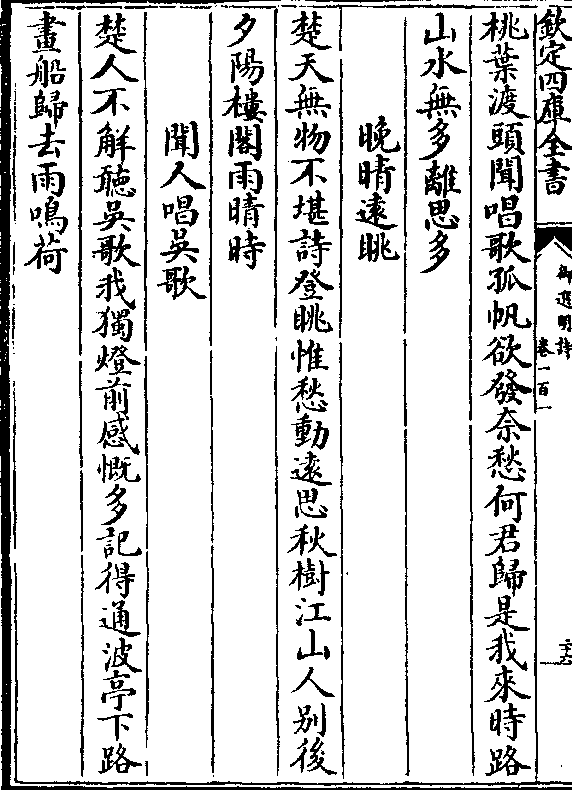 欽定四庫全書
御選明詩
卷一百一
桃葉渡頭聞唱歌孤帆欲發奈愁何君歸是我來時路
山水無多離思多
晚晴遠眺
楚天無物不堪詩登眺惟愁動遠思秋樹江山人别後
夕陽樓閣雨晴時
聞人唱吳歌
楚人不解聽吳歌我獨燈前感慨多記得通波亭下路
畫船歸去雨鳴荷